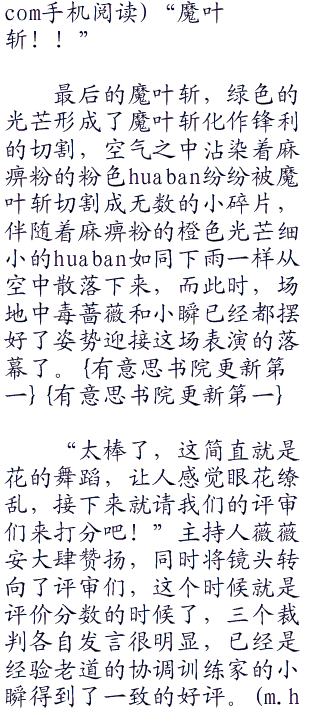 com手机阅读)“魔叶
斩！！”
最后的魔叶斩，绿色的
光芒形成了魔叶斩化作锋利
的切割，空气之中沾染着麻
痹粉的粉色huaban纷纷被魔
叶斩切割成无数的小碎片，
伴随着麻痹粉的橙色光芒细
小的huaban如同下雨一样从
空中散落下来，而此时，场
地中毒蔷薇和小瞬已经都摆
好了姿势迎接这场表演的落
幕了。{有意思书院更新第
一}{有意思书院更新第一}
“太棒了，这简直就是
花的舞蹈，让人感觉眼花缭
乱，接下来就请我们的评审
们来打分吧！”主持人薇薇
安大肆赞扬，同时将镜头转
向了评审们，这个时候就是
评价分数的时候了，三个裁
判各自发言很明显，已经是
经验老道的协调训练家的小
瞬得到了一致的好评。(m.h